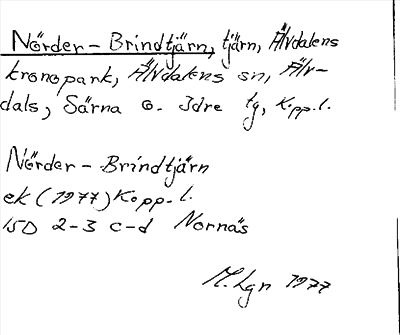 Nörder - Brindtjärn, tjärn, Älvdalens
kronopark, Älvdalens sn, Älv-
dals, Särna o. Idre tg, Kopp.l.
Nörder - Brindtjärn
ek (1977) Kopp. l.
15D 2-3 c-d Nornäs
M.Lgn 1977